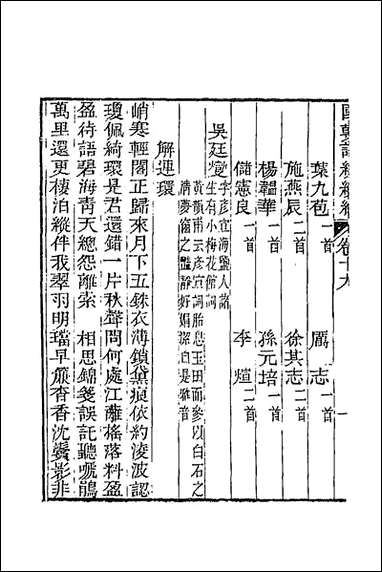 國朝詞綜續編 卷十九 一
葉九苞一首 厲志一首
施燕辰二首 徐其志二首
楊韞華一首 孫元培一首
儲憲良一首 李煊二首
吳廷燮 字彥宣海鹽人諸
生有小梅花館詞
黃韻甫云彥宣詞胎息玉田而參以白石之
清夢窗之豔靜好娟潔自是雅音
解連環
峭寒輕閣正歸來月下五銖衣薄鎖黛痕依約淩波認
瓊佩綺環是君還錯一片秋聲問何處江蘺搖落料盈
盈待語碧海靑天總怨離索 相思錦箋誤託聽嗁鵑
萬里還更棲泊縱伴我翠羽明璫早簾杳香沈鬢影非